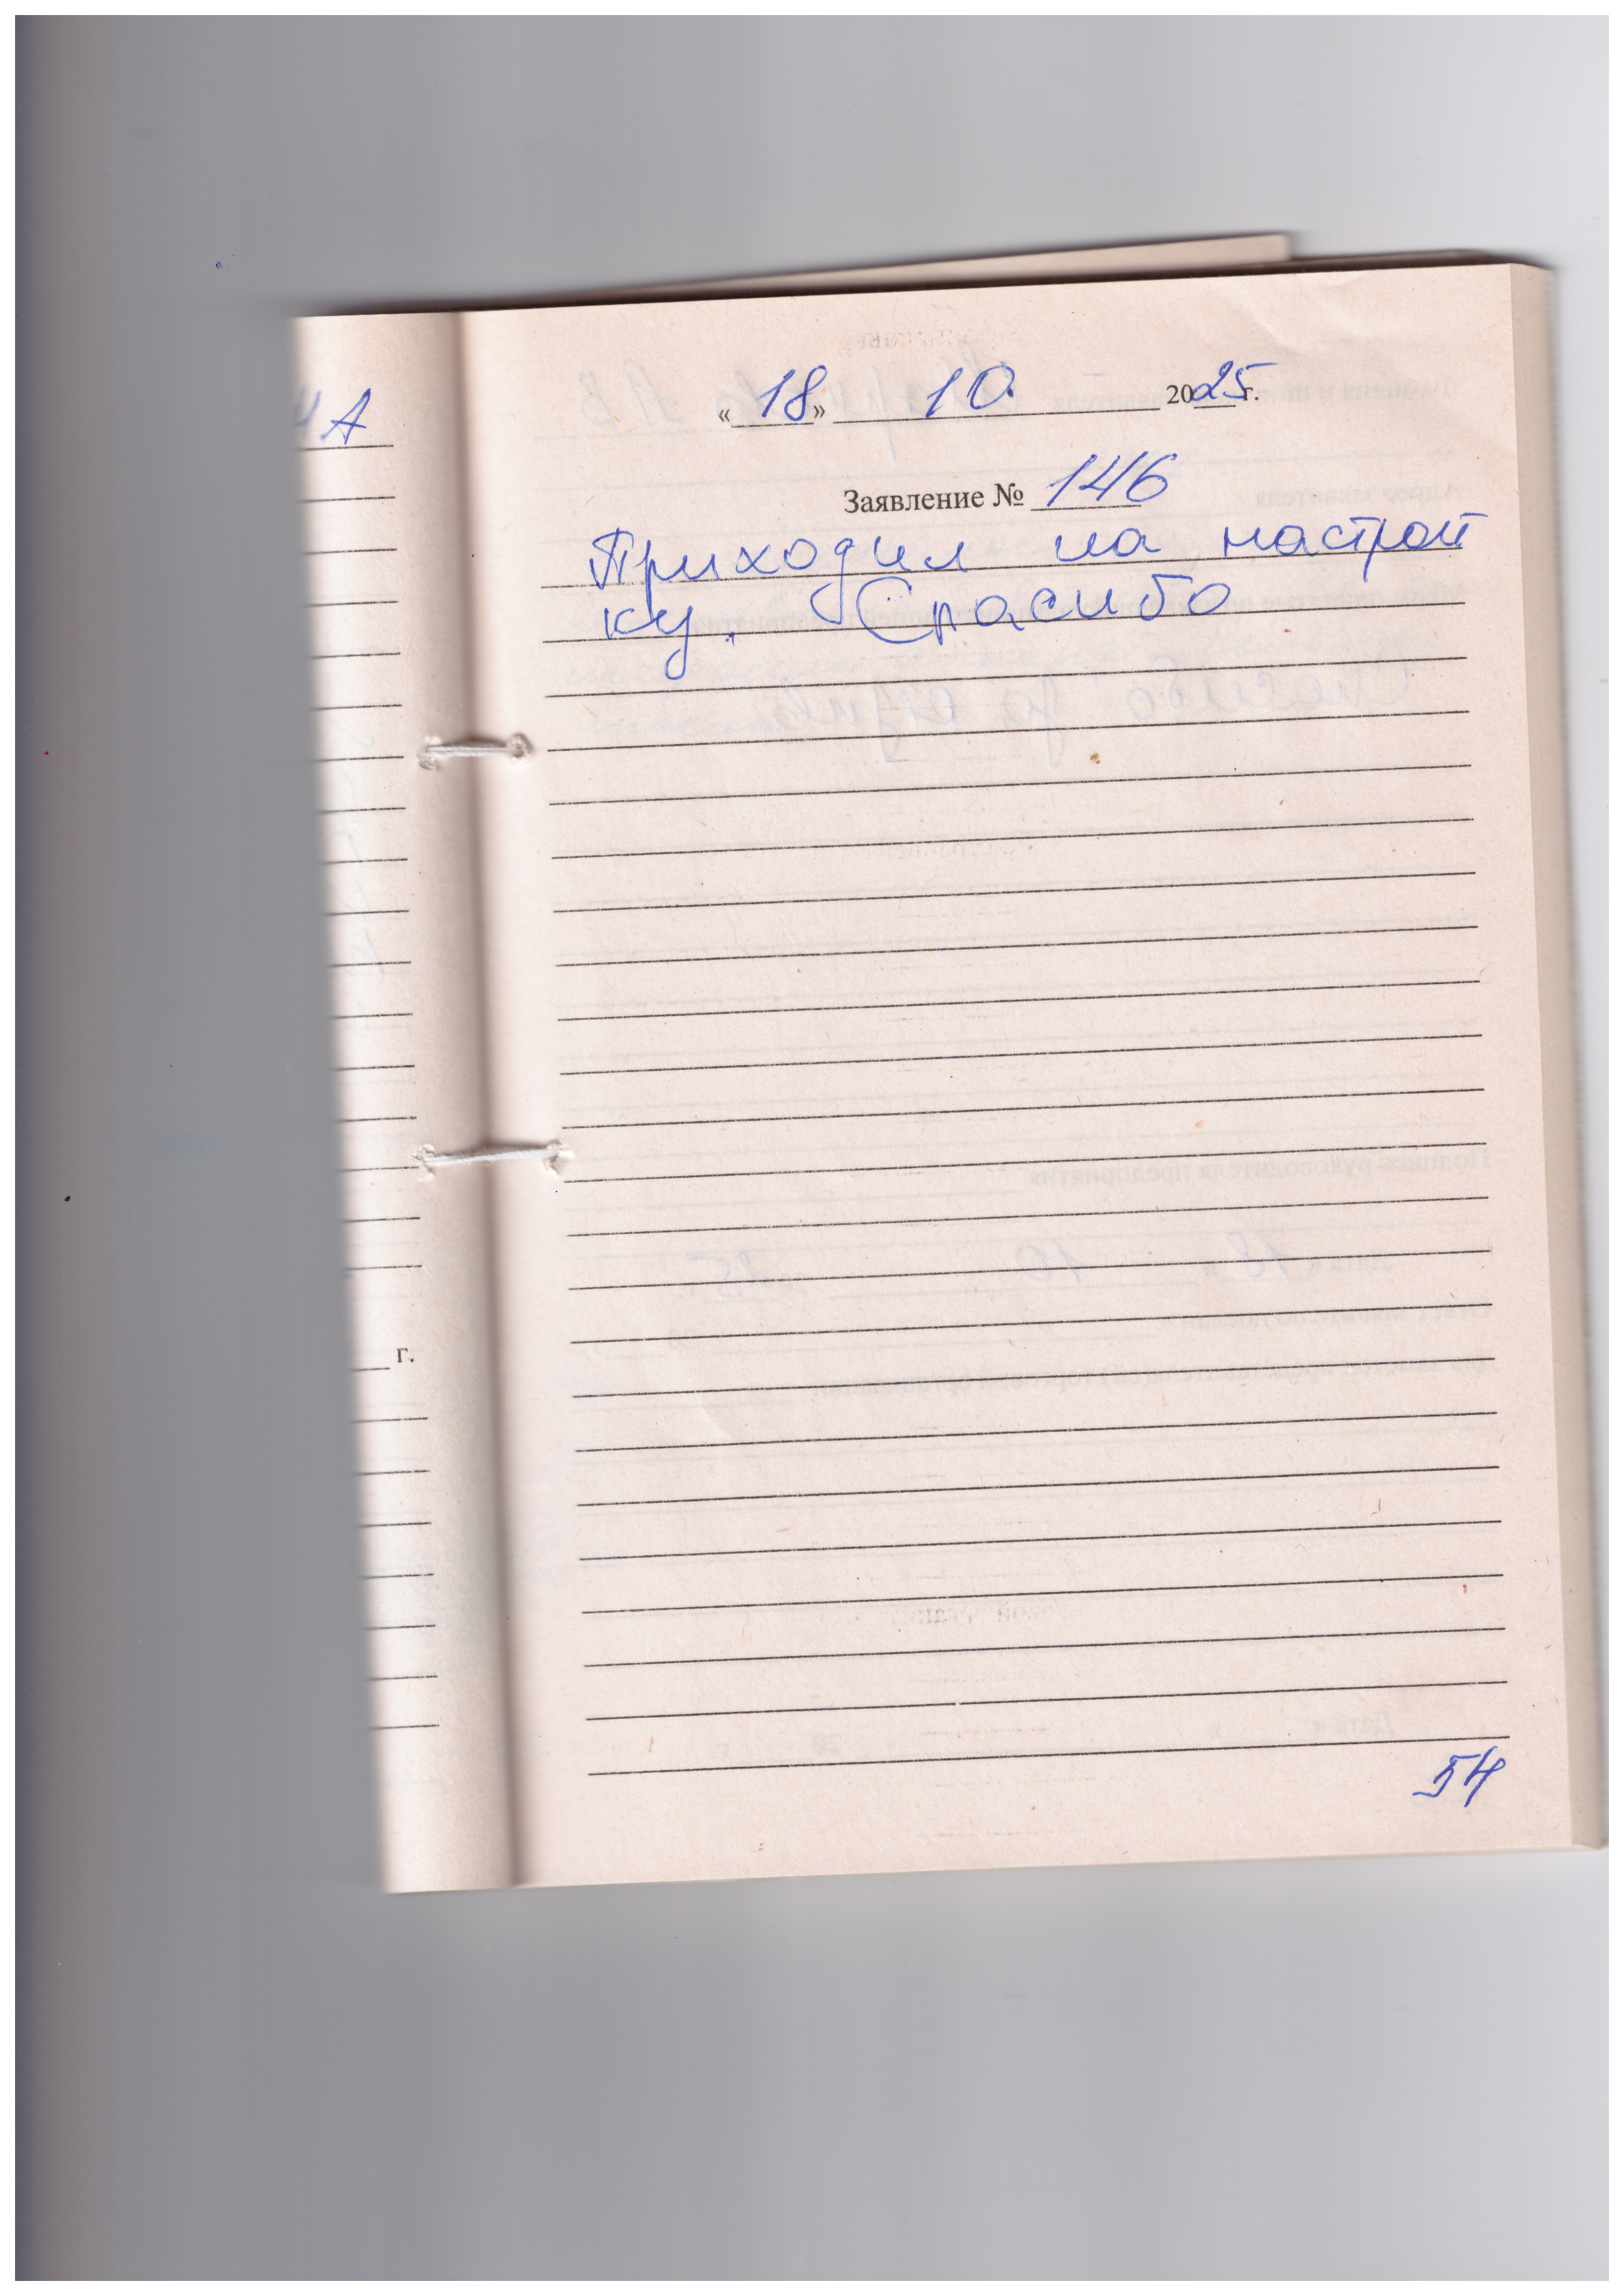 А
«18» 10. 2025 г.
Заявление № 146
Приходил на настрой
ку. Спасибо
г.
54